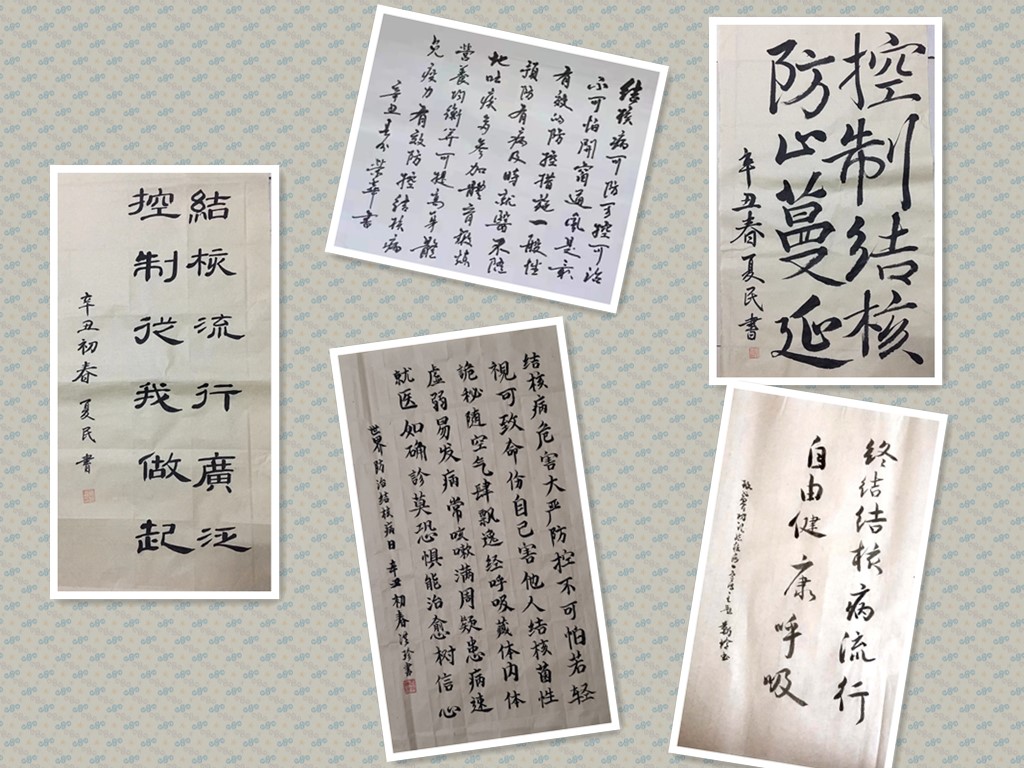 結核流行廣泛
控制從我做起
辛丑初春 夏民 書
结核病可防可控可治
不可怕開窗通風是最
有效的防控措施一般性
預防有病及時就醫不隨
地吐痰多參加體育鍛煉
營養均衡 可提高身體
免疫力有效防控结核病
辛丑春分 荣華書
控制结核
防止蔓延
辛丑春夏民書
结核病危害大严防控不可怕若轻
視可致命伤自己害他人结核菌性
詭秘随空气肆飘逸经呼吸藏体内体
虚弱易发病常咳嗽满周疑患病速
就医如确診莫恐惧能治愈树信心
世界防治结核病日 辛丑初春 珍書
终结结核病流行
自由健康呼吸